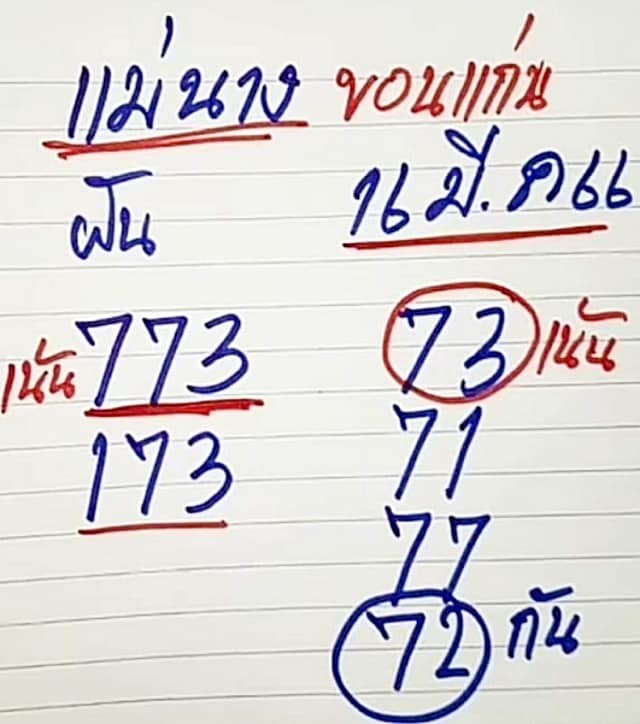 แม่นาง ขอนแก่น
ฝัน 16 มี.ค 66
เน้น 773 73 เน้น
173 71
77
72 กัน